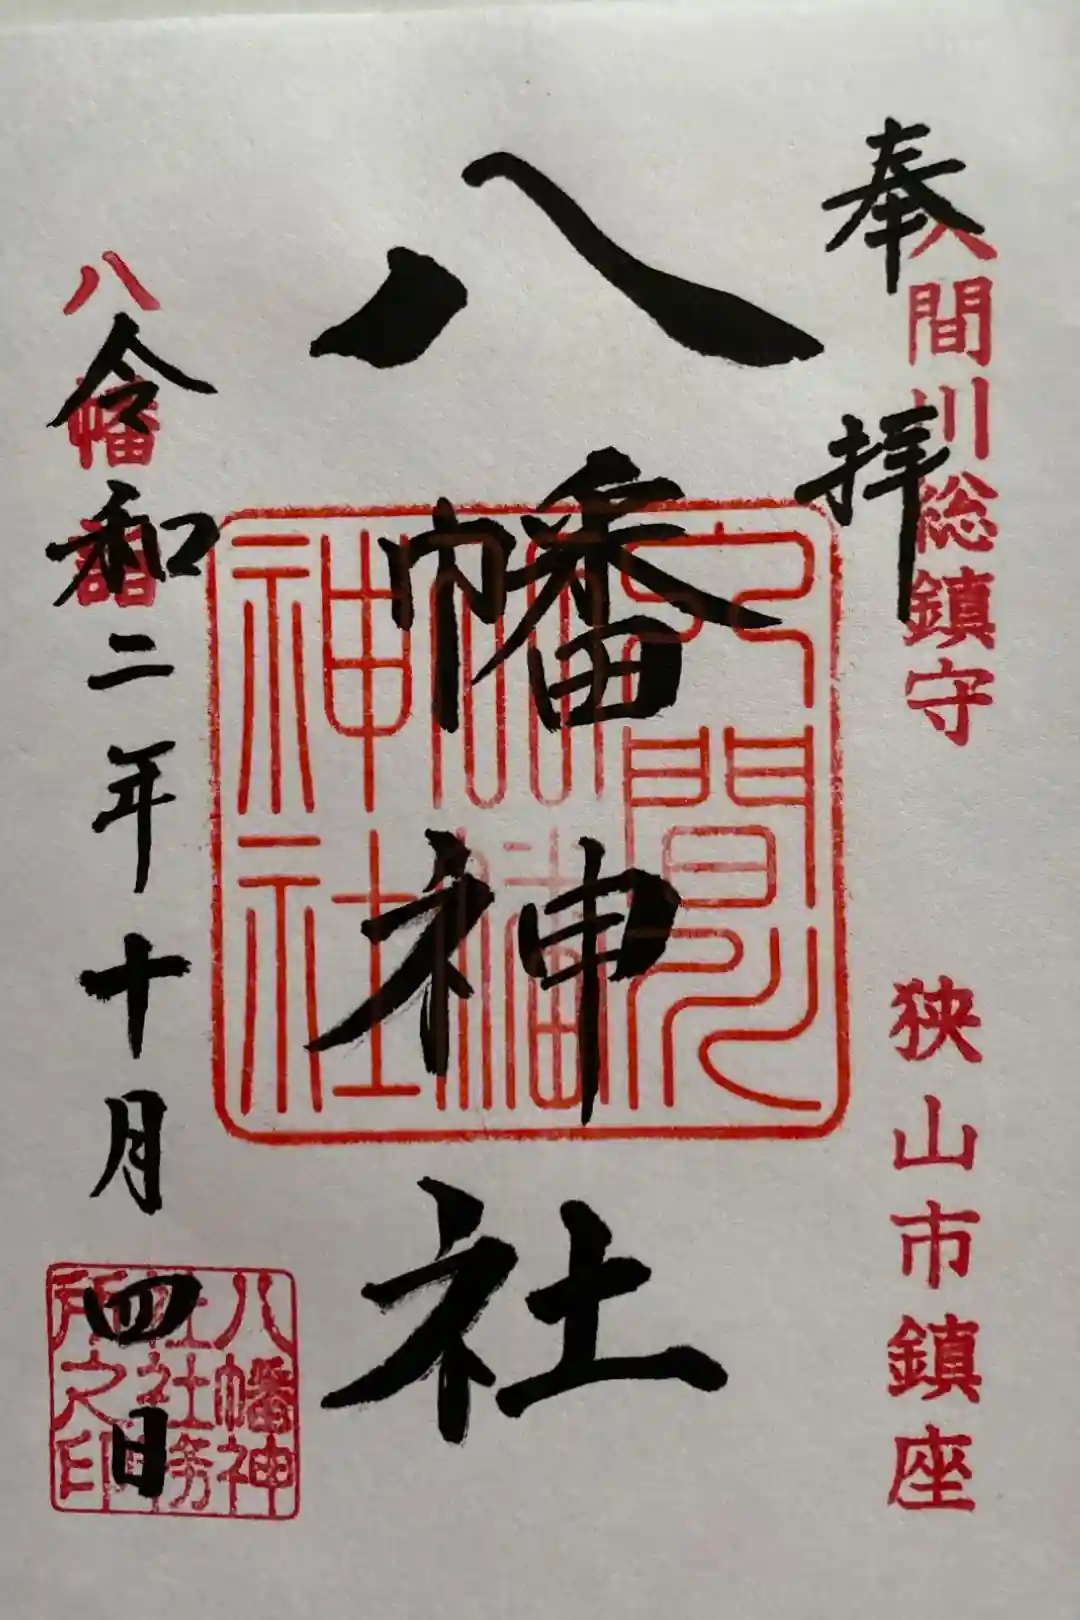 奉拝
入間川総鎮守
狭山市鎮座
八幡神社
入間
八幡
神社
令和二年十月四日
八幡神
社社務
所之印